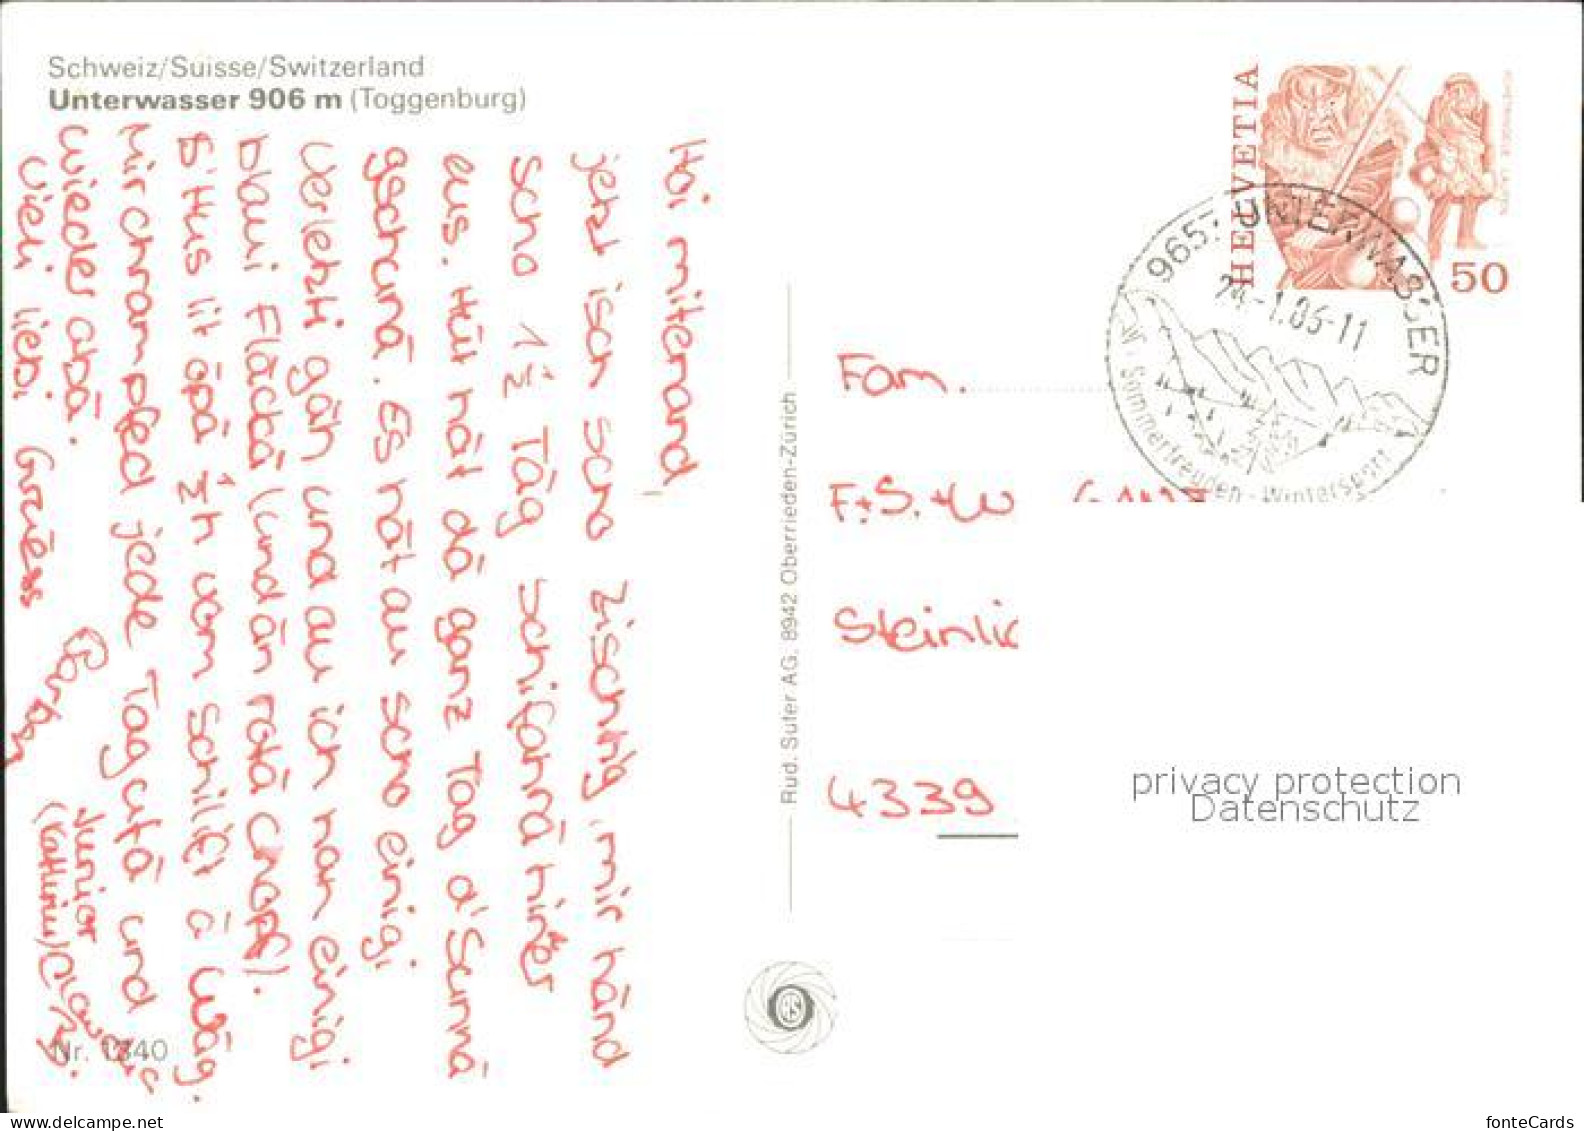 Schweiz/Suisse/Switzerland
Unterwasser 906 m (Toggenburg)
Hoi mitenand,
jetzt isch scho zischtig, mir händ
scho 1½ Täg schifahrä hinter
eus. Hüt hät dä ganz Tag d'Sunnä
gschunä. Es hät au scho einigi
verletzti gän und au ich han einigi
blaui Fläckä (und än rotä chopf).
S'Hus lit öpä ½h vom Schilift ä wäg.
Mir chrampfed jede Tag ufä und
wieder abä.
Vieli liebi Grüess
Junior
(Kathrin)
Nr. 1340
Rud. Suter AG. 8942 Oberrieden-Zürich
RS
HELVETIA
50
9657 UNTERWASSER
24.-1.86-11
Sommerfreuden - Wintersport
Fam.
F.+S.+W
4339
privacy protection
Datenschutz
fonteCards
delcampe.net